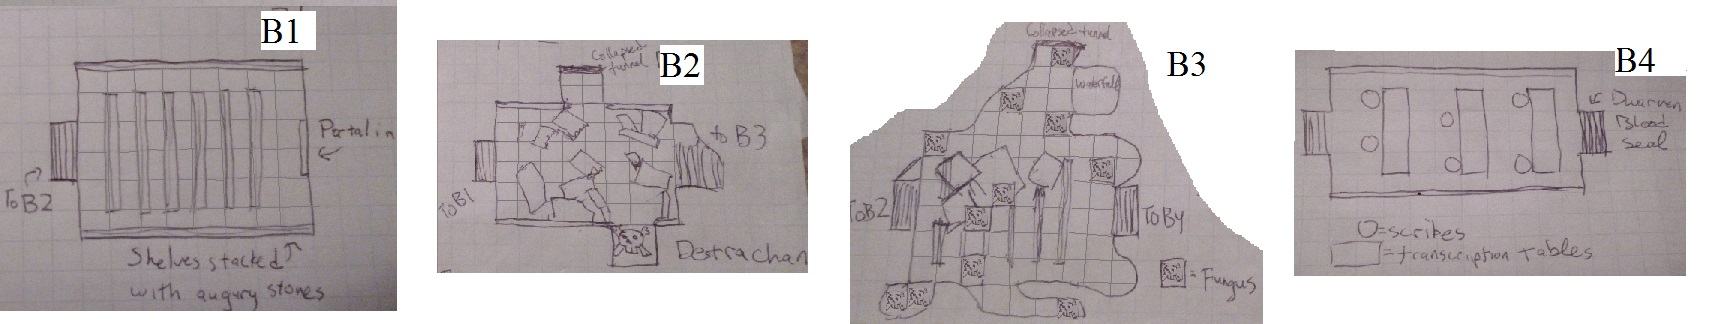 B1
Portal in
To B2
Shelves stacked
with augury stones
B2
Collapsed
tunnel
to B3
To B1
Destrachan
B3
Collapsed tunnel
Waterfall
To B2
To B4
= Fungus
B4
Dwarven
Blood
seal
O=scribes
= transcription tables